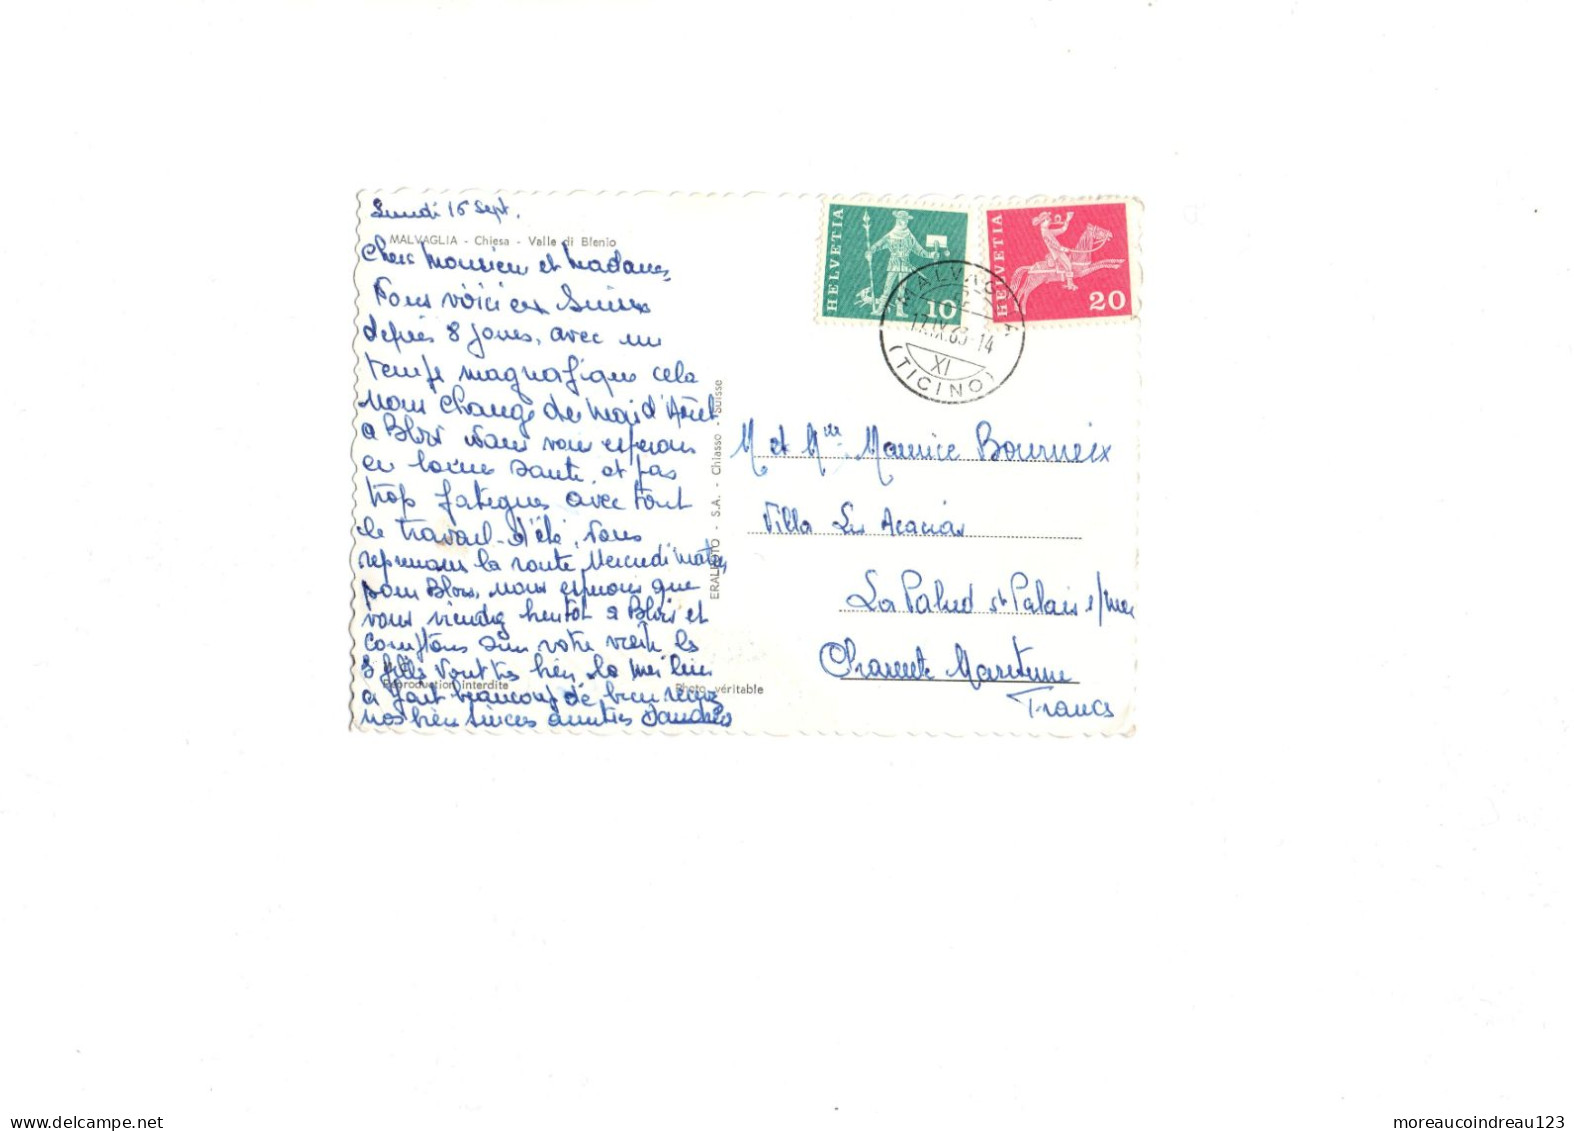 Lundi 16 Sept.
MALVAGLIA - Chiesa - Valle di Blenio
Chers Monsieur et Madame,
Nous voici en Suisse
depuis 8 jours, avec un
temps magnifique cela
nous change du mois d'Août
a Blois nous vous esperons
en bonne santé, et pas
trop fatigues avec tout
le travail d'été, nous
reprenons la route Mercredi matin
pour Blois, nous esperons que
vous viendrez bientôt a Blois et
comptons sur votre visite les
filles vont tres bien
Reproduction interdite
Photo véritable
a fait beaucoup de
nos bien sinceres amities
ERALFOTO - S.A. - Chiasso - Suisse
HELVETIA
10
HELVETIA
20
MALVAGLIA
17.IX.63-14
XI
(TICINO)
M et Mme Maurice Bourneix
Villa Les Acacias
La Palud St Palais s/mer
Charente Maritime
France
delcampe.net
moreaucoindreau123